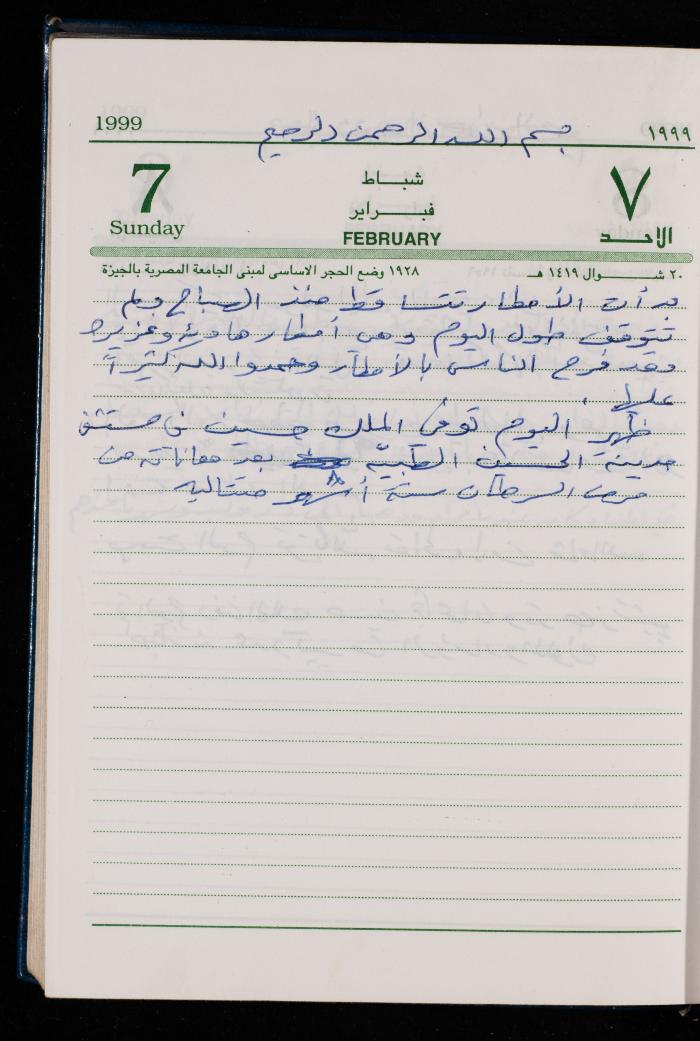 1999 بسم الله الرحمن الرحيم ١٩٩٩
7 شباط ٧
فبراير
Sunday FEBRUARY الاحد
٢٠ شوال ١٤١٩ هـ ١٩٢٨ وضع الحجر الاساسى لمبنى الجامعة المصرية بالجيزة
بدأت الأمطار تتساقط منذ الصباح ولم
تتوقف طول اليوم وهى أمطار هادئة وغزيره
وقد فرح الناس بالأمطار وحمدوا الله كثيراً
عليها .
ظهر اليوم توفى الملك حسين فى مستشفى
مدينة الحسين الطبيه بعد معاناة من
مرض السرطان ستة أشهر متتاليه